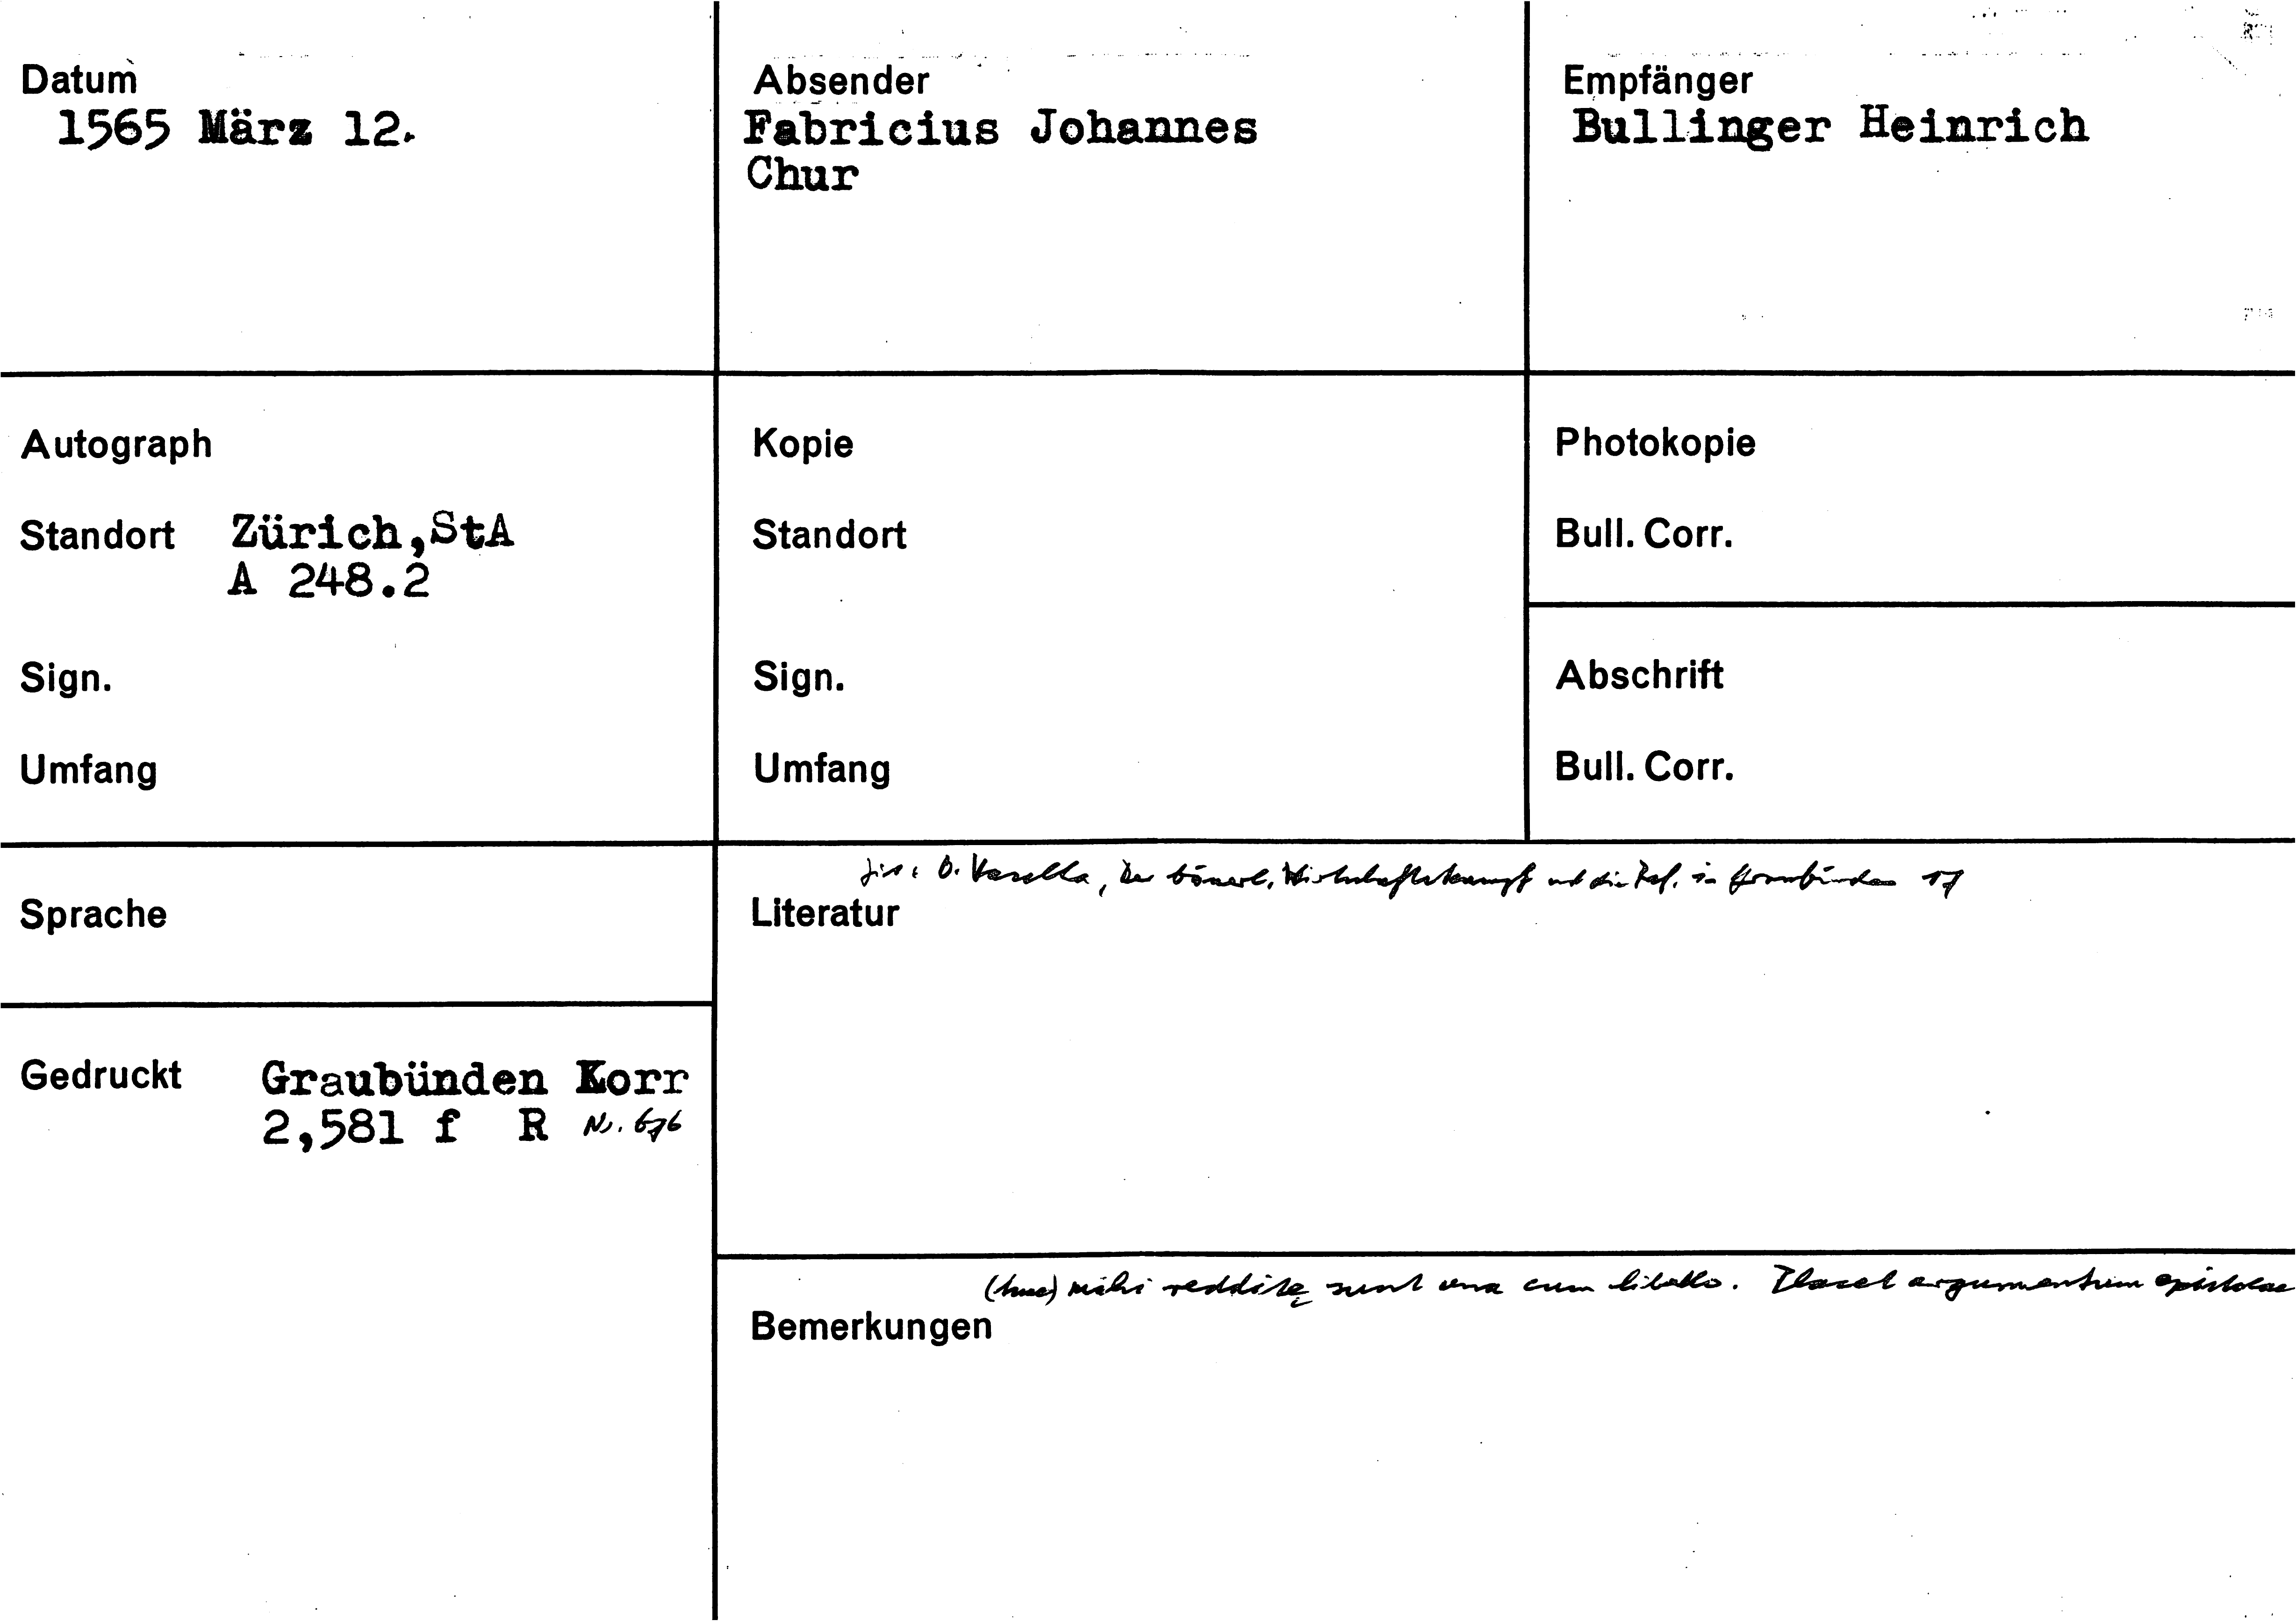 Datum
1565 März 12.
Absender
Fabricius Johannes
Chur
Empfänger
Bullinger Heinrich
Autograph
Standort Zürich,StA
A 248.2
Sign.
Umfang
Kopie
Standort
Sign.
Umfang
Photokopie
Bull. Corr.
Abschrift
Bull. Corr.
Sprache
Gedruckt Graubünden Korr
2,581 f R Nr. 676
O. Vasella, Der bäuerl. Wirtschaftskampf und die Ref. in Graubünden 17
Literatur
mihi redditę sunt una cum libello. Placet argumentum epistolae
Bemerkungen